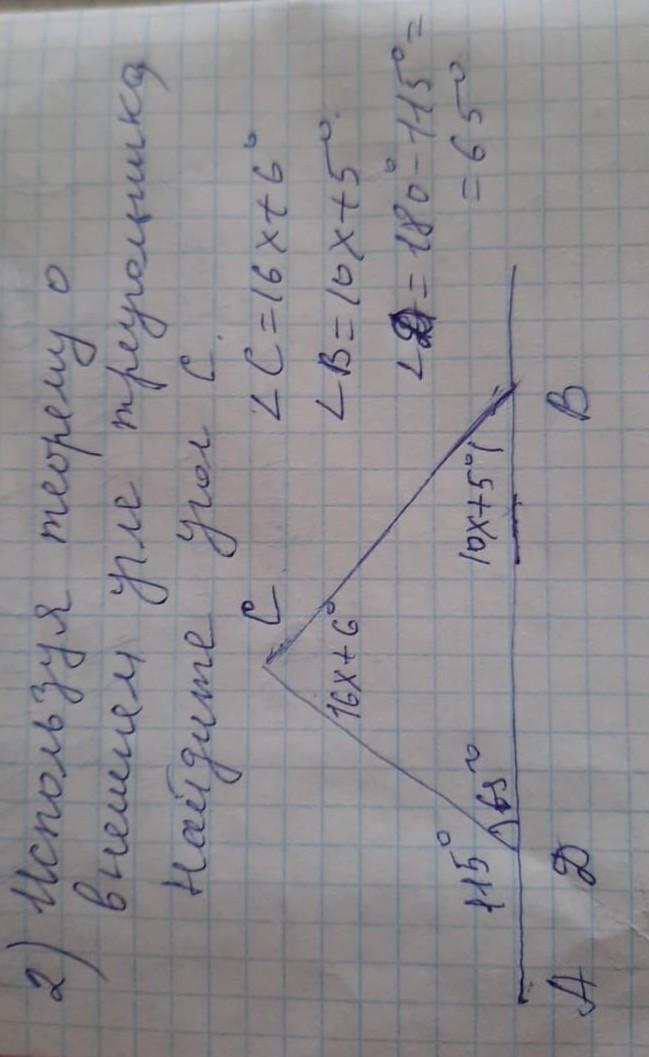 2) Используя теорему о
внешнем угле треугольника
Найдите угол C.
∠C=16x+6°
∠B=10x+5°.
∠D=180°-115°=
=65°
C
16x+6°
115°
65°
10x+5°
A
D
B